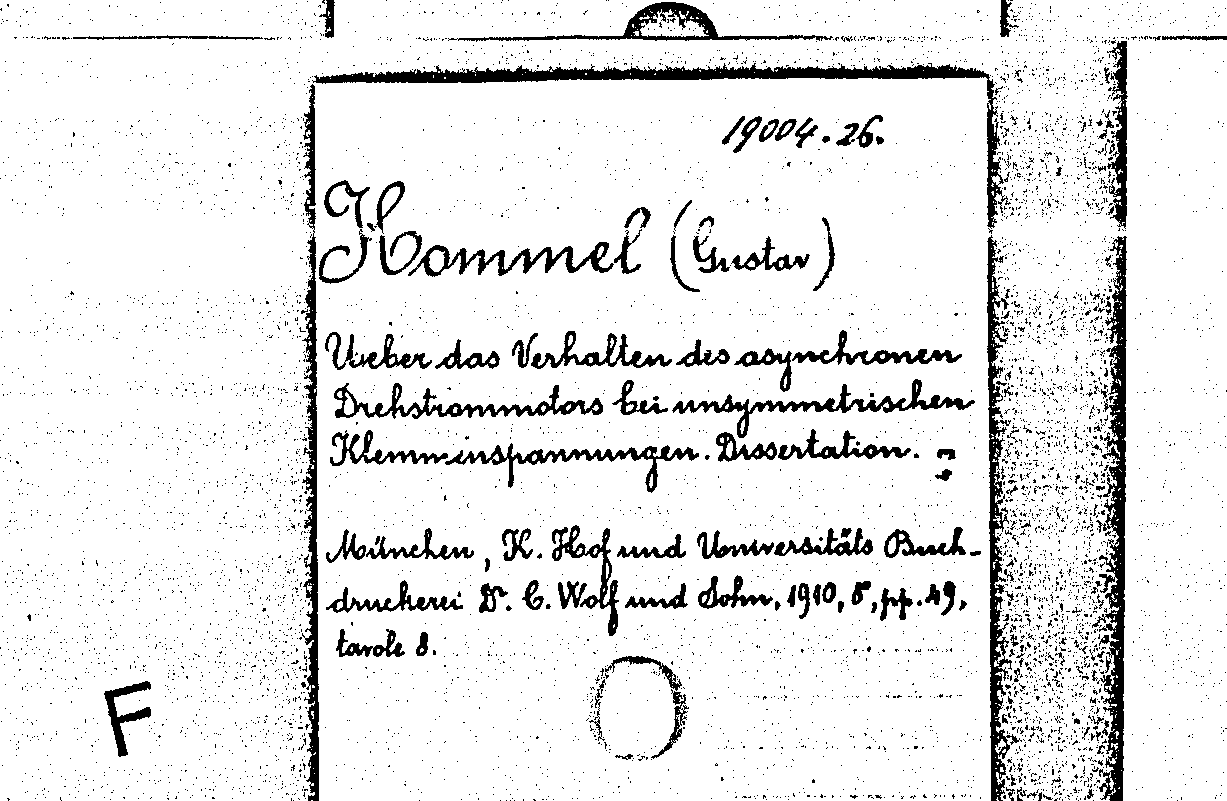 19004.26.
Hommel (Gustav)
Ueber das Verhalten des asynchronen
Drehstrommotors bei unsymmetrischen
Klemmenspannungen. Dissertation. =
München, K. Hof und Universitäts Buch-
druckerei Dr. C. Wolf und Sohn, 1910, 8, pp. 49,
tavole 8.
F